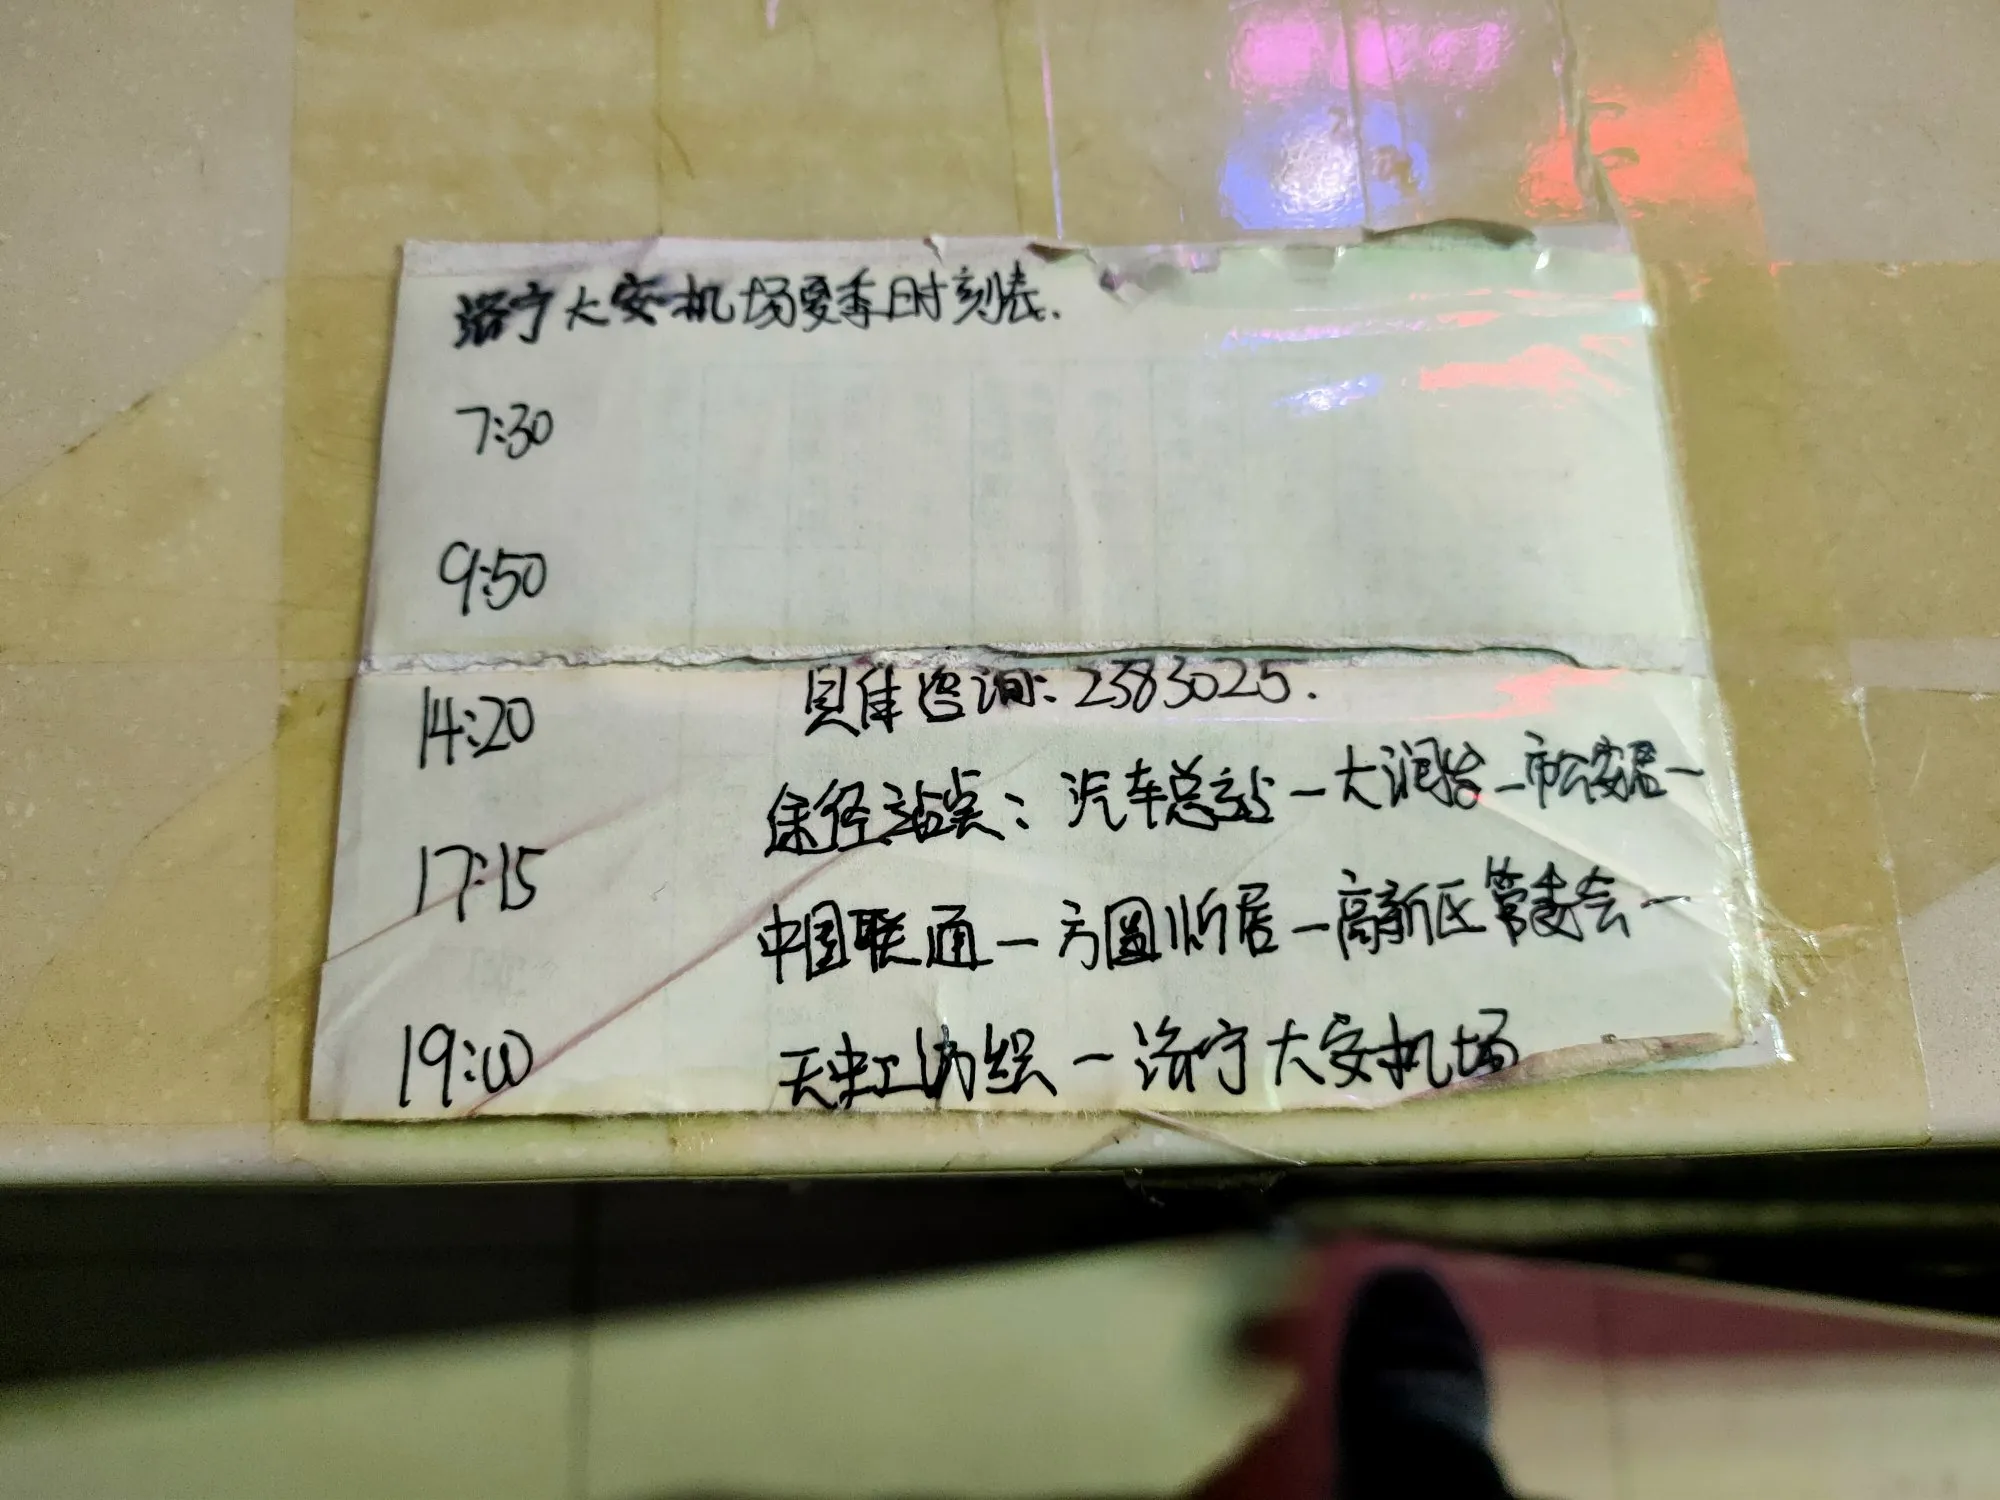 济宁大安机场夏季时刻表.
7:30
9:50
14:20
具体咨询:2383025.
途径站点：汽车总站—大润发—市公安局—
17:15
中国联通—方圆忻居—高新区管委会—
19:00
天虹纺织—济宁大安机场